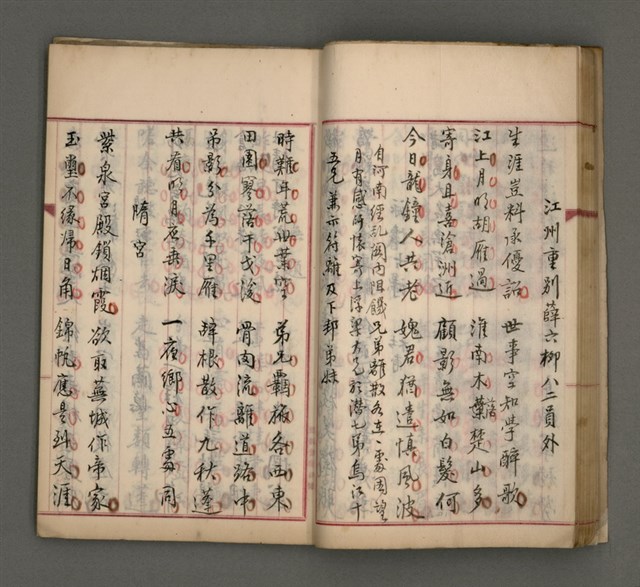 江州重別薛六柳八二員外
生涯豈料承優詔　世事空知學醉歌
江上月明胡雁過　淮南木葉楚山多
落
寄身且喜滄洲近　顧影無如白髮何
今日龍鐘人共老　媿君猶遣慎風波
自河南經乱関內阻饑兄弟離散各在一處因望
月有感所懷寄上浮梁大兄於潛七弟烏江十
五兄兼示符離及下邽弟妹
時難年荒世業空　弟兄羈旅各西東
田園寥落干戈後　骨肉流離道路中
吊影分為千里雁　辭根散作九秋蓬
共看明月應垂淚　一夜鄉心五處同
隋宮
紫泉宮殿鎖烟霞　欲取蕪城作帝家
玉璽不緣歸日角　錦帆應是到天涯